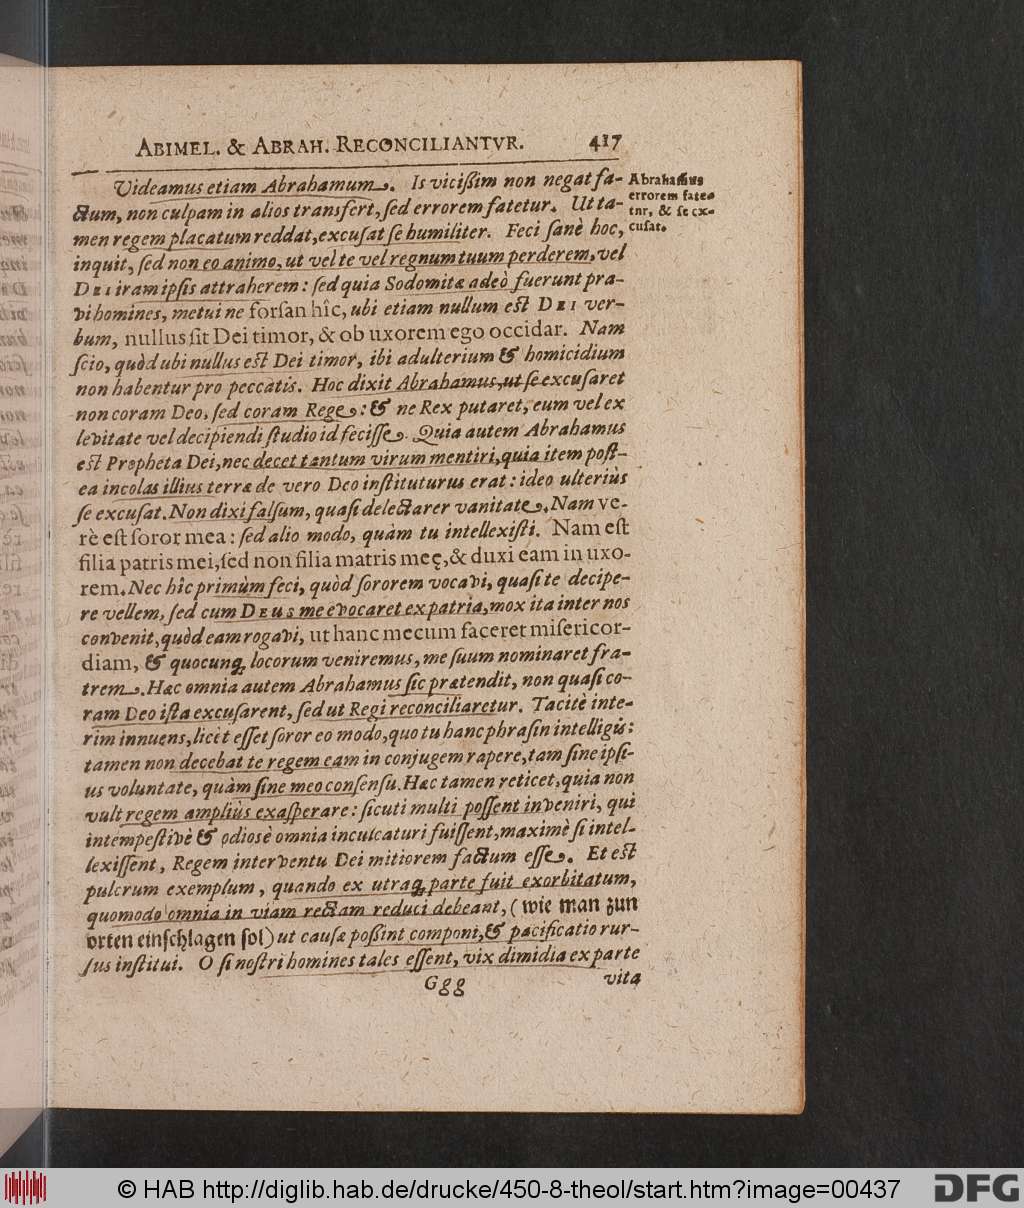 ABIMEL. & ABRAH. RECONCILIANTVR. 417
Videamus etiam Abrahamum. Is vicißim non negat fa-
ctum, non culpam in alios transfert, ſed errorem fatetur. Ut ta-
men regem placatum reddat, excuſat ſe humiliter. Feci ſanè hoc,
inquit, ſed non eo animo, ut vel te vel regnum tuum perderem, vel
DEI iram ipſis attraherem: ſed quia Sodomitæ adeò fuerunt pra-
vi homines, metui ne forſan hîc, ubi etiam nullum eſt DEI ver-
bum, nullus ſit Dei timor, & ob uxorem ego occidar. Nam
ſcio, quòd ubi nullus eſt Dei timor, ibi adulterium & homicidium
non habentur pro peccatis. Hoc dixit Abrahamus, ut ſe excuſaret
non coram Deo, ſed coram Rege: & ne Rex putaret, eum vel ex
levitate vel decipiendi ſtudio id feciſſe. Quia autem Abrahamus
eſt Propheta Dei, nec decet tantum virum mentiri, quia item poſt-
ea incolas illius terræ de vero Deo inſtituturus erat: ideo ulteriùs
ſe excuſat. Non dixi falſum, quaſi delectarer vanitate. Nam ve-
rè eſt ſoror mea: ſed alio modo, quàm tu intellexiſti. Nam eſt
filia patris mei, ſed non filia matris meę, & duxi eam in uxo-
rem. Nec hîc primùm feci, quòd ſororem vocavi, quaſi te decipe-
re vellem, ſed cum DEUS me evocaret ex patria, mox ita inter nos
convenit, quòd eam rogavi, ut hanc mecum faceret miſericor-
diam, & quocunq; locorum veniremus, me ſuum nominaret fra-
trem. Hæc omnia autem Abrahamus ſic prætendit, non quaſi co-
ram Deo iſta excuſarent, ſed ut Regi reconciliaretur. Tacitè inte-
rim innuens, licèt eſſet ſoror eo modo, quo tu hanc phraſin intelligis:
tamen non decebat te regem eam in conjugem rapere, tam ſine ipſi-
us voluntate, quàm ſine meo conſenſu. Hæc tamen reticet, quia non
vult regem ampliùs exaſperare: ſicuti multi poſſent inveniri, qui
intempeſtivè & odiosè omnia inculcaturi fuiſſent, maximè ſi intel-
lexiſſent, Regem interventu Dei mitiorem factum eſſe. Et eſt
pulcrum exemplum, quando ex utraq; parte fuit exorbitatum,
quomodo omnia in viam rectam reduci debeant, (wie man zun
orten einſchlagen ſol) ut cauſæ poßint componi, & pacificatio rur-
ſus inſtitui. O ſi noſtri homines tales eſſent, vix dimidia ex parte
Ggg vita
Abrahamus
errorem fate-
tur, & ſe ex-
cuſat.
© HAB http://diglib.hab.de/drucke/450-8-theol/start.htm?image=00437
DFG